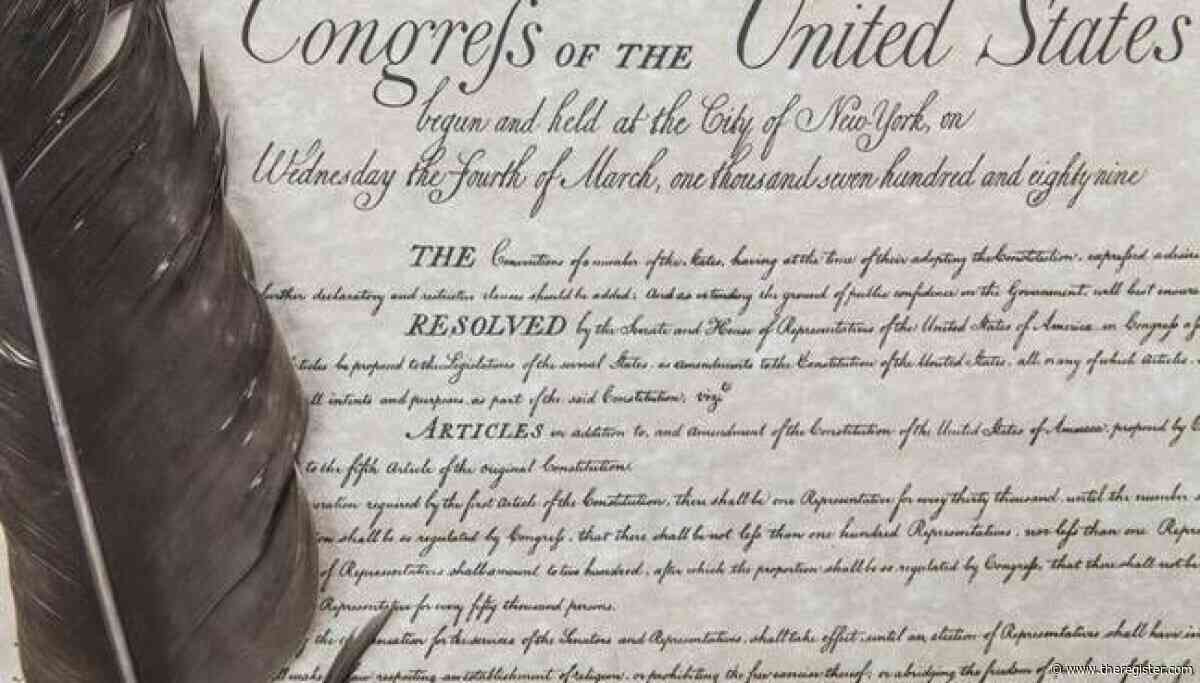 Congreſs OF THE United States
begun and held at the City of New-York, on
Wednesday the Fourth of March, one thousand seven hundred and eighty nine
THE Conventions of a number of the States, having at the time of their adopting the Constitution, expreſsed a desire
further declaratory and restrictive clauses should be added: And as extending the ground of public confidence in the Government, will best ensure
RESOLVED by the Senate and House of Representatives of the United States of America in Congreſs
be proposed to the Legislatures of the several States, as amendments to the Constitution of the United States, all or any of which Articles,
intents and purposes, as part of the said Constitution, vizt
ARTICLES in addition to, and amendment of the Constitution of the United States of America, proposed by
to the fifth Article of the original Constitution.
required by the first Article of the Constitution, there shall be one Representative for every thirty thousand, until the number
shall be so regulated by Congreſs, that there shall be not leſs than one hundred Representatives, nor leſs than one
of Representatives shall amount to two hundred, after which the proportion shall be so regulated by Congreſs, that there shall not be
Representative for every fifty thousand persons.
the for the services of the Senators and Representatives, shall take effect, until an election of Representatives shall have
make respecting an establishment of religion, or prohibiting the free exercise thereof; or abridging the freedom of
© www.theregister.com